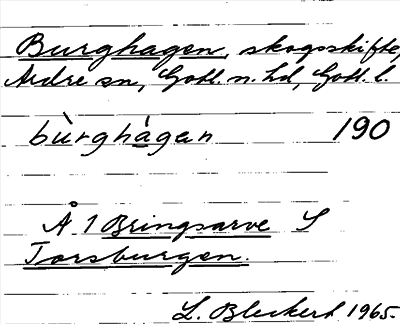 Burghagen, skogsskifte,
Ardre sn, Gotl. n. hd, Gotl. l.
bùrghàgan 190
Å 1 Bringsarve S
Torsburgen.
L. Bleckert 1965.